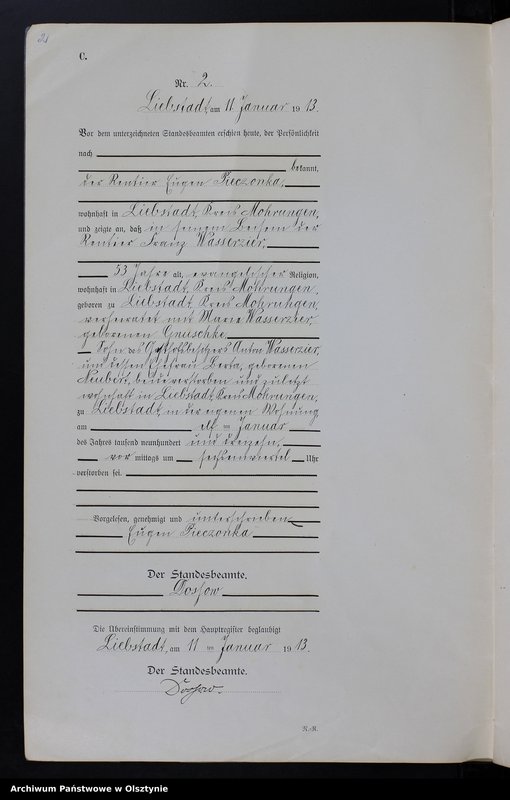 2
C.
Nr. 2.
Liebstadt, am 11 Januar 1913.
Vor dem unterzeichneten Standesbeamten erschien heute, der Persönlichkeit
nach
bekannt,
der Rentier Eugen Pieczonka,
wohnhaft in Liebstadt, Kreis Mohrungen,
und zeigte an, daß in seinem Beisein der
Rentier Franz Wasserzier,
53 Jahre alt, evangelischer Religion,
wohnhaft in Liebstadt, Kreis Mohrungen,
geboren zu Liebstadt, Kreis Mohrungen,
verheiratet mit Marie Wasserzier,
geborenen Gnuschke
Sohn des Gasthofbesitzers Anton Wasserzier,
und dessen Ehefrau Berta, geborenen
Neubert, beide verstorben und zuletzt
wohnhaft in Liebstadt, Kreis Mohrungen,
zu Liebstadt, in der eigenen Wohnung
am elf ten Januar
des Jahres tausend neunhundert und dreizehn,
vor mittags um Uhr
verstorben sei.
Vorgelesen, genehmigt und unterschrieben
Eugen Pieczonka
Der Standesbeamte.
Dossow
Die Übereinstimmung mit dem Hauptregister beglaubigt
Liebstadt, am 11 ten Januar 1913.
Der Standesbeamte.
Dossow.
R.-R.
Archiwum Państwowe w Olsztynie